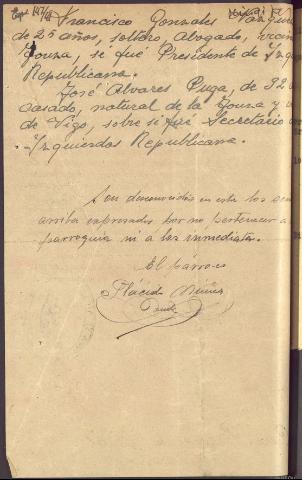 Francisco Gonzales
de 25 años, soltero, Abogado, vecino
Gouza, si fué Presidente de Izq
Republicana.
José Alvares Puga, de 32
casado, natural de la Gouza y
de Vigo, sobre si fué Secretario
Izquierda Republicana.
Son desconocidos en esta los
arriba expresados por no pertenecer a
parroquia ni a las inmediatas.
El párroco
Plácido